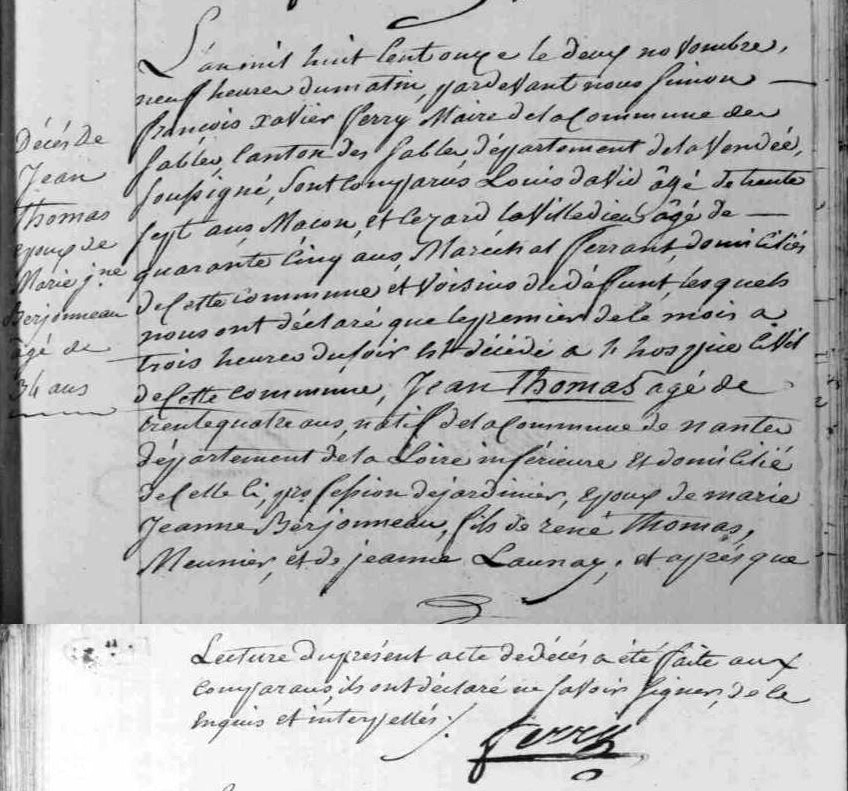 Décés de
Jean
Thomas
epoux de
Marie j.ne
Berjonneau
âgé de
34 ans
L'an mil huit Cent onze le deux novembre,
neuf heures du matin, pardevant nous Simon
françois xavier ferry Maire de la Commune des
Sables, Canton des Sables département de la Vendée,
soussigné, sont comparus Louis david âgé de trente
sept ans Macon, et lezard laVilledieu âgé de
quarante Cinq ans Maréchal ferrant, domiciliés
de Cette commune et Voisins du défunt lesquels
nous ont déclaré que le premier de ce mois a
trois heures du soir Est décédé a l'hospice Civil
de Cette commune, Jean Thomas agé de
trente quatre ans, natif de la Commune de nantes
département de la Loire inférieure Et domicilié
de Celle Ci, profession de jardinier, Epoux de marie
Jeanne Berjonneau, fils de rené Thomas,
Meunier, et de jeanne Launay; et après que
Lecture du présent acte de décés a été faite aux
Comparans, ils ont déclaré ne savoir signer, de ce
Enquis et interpellés /.
ferry